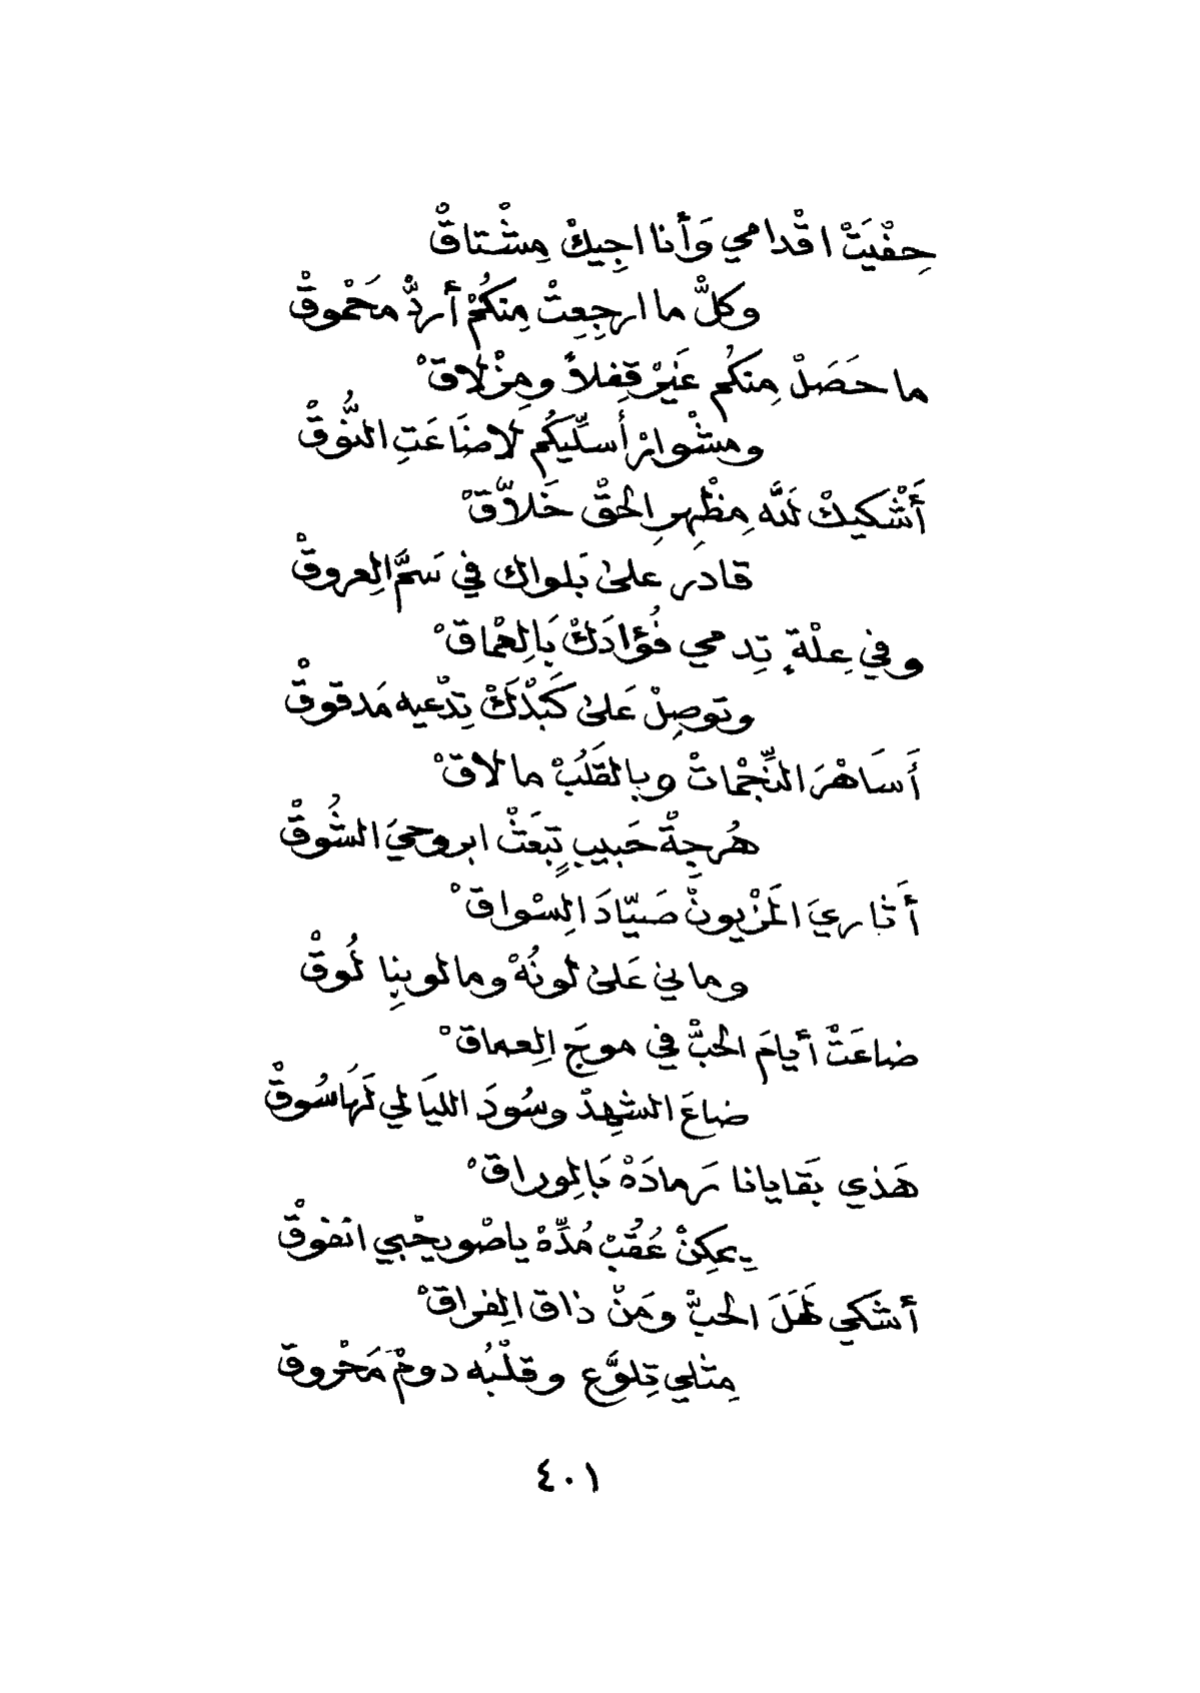 حِفْيَتْ اقْدامي وَأنا اجِيكْ مِشْتاقْ
وكلّْ ما ارجِعِتْ مِنكُمْ أردّْ محَمْوقْ
ما حَصَلْ مِنكُم غَيْر قِفلاً ومِزْلاقْ
ومشْوارْ أسلِّيكُم لاضَاعَتِ النُّوقْ
أَشْكيكْ لَلّه مِظْهِرِ الحقْ خَلاّقْ
قادَر علىٰ بَلواك في سَمَّ الِعروقْ
وفي عِلْةٍ تِدمي فُؤادَكْ بَالِعْماقْ
وتوصِلْ عَلىٰ كَبْدَكْ تِدْعيه مَدقوقْ
أَسَاهْرَ النِّجْماتْ وبالقَلَبْ مالاقْ
هُرجِةْ حَبيبٍ تِبعَثْ ابروحيَ الشُوقْ
أَثاريَ المَزْيونْ صَيّادَ الِسْواقْ
وماني عَلىٰ لونُهْ ومالوبِنِا لُوقْ
ضاعَتْ أيامَ الحبّْ في موجَ الِعماقْ
ضاعَ الشهِدْ وسُودَ الليَالي لَهَا سُوقْ
هَذي بَقايانا رَمادَهْ بَالِوراقْ
يِمكِنْ عُقُبْ مُدِّهْ ياصْويحْبي اتفوقْ
أشكي لهَلَ الحبّْ ومَنْ ذاق الِفراقْ
مِثلي تِلوَّع وقلْبُه دومْ مَحْروقْ
٤٠١